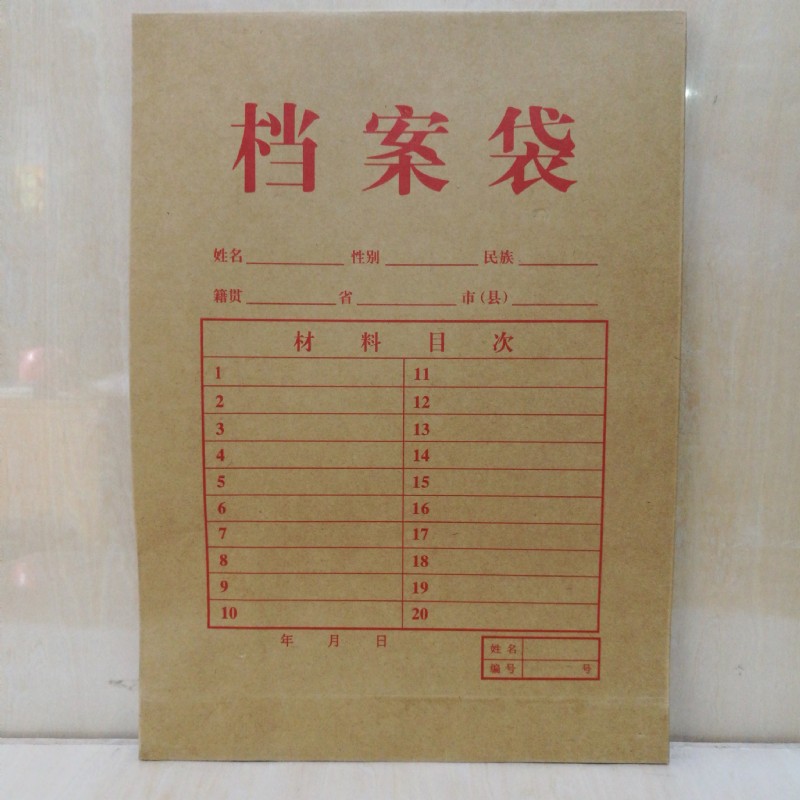 档案袋
姓名 性别 民族
籍贯 省 市(县)
材料目次
1 11
2 12
3 13
4 14
5 15
6 16
7 17
8 18
9 19
10 20
年 月 日
姓名
编号 号